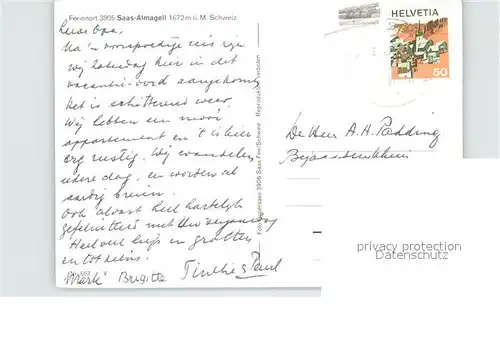 Ferienort 3905 Saas-Almagell 1672 m ü. M. Schweiz
Lieve Opa,
Na 'n voorspoedige reis zijn
wij Zaterdag hier in het
vacantie-oord aangekomen
het is schitterend weer.
Wij hebben een mooi
appartement en 't is hier
erg rustig. Wij wandelen
iedere dag, en worden al
aardig bruin.
Ook alvast heel hartelijk
gefeliciteerd met Uw verjaardag
Heel veel liefs en groeten
en tot ziens.
Mark Brigitte Tinthe & Paul
Reproduktion verboten
3906 Saas Fee/Schweiz
HELVETIA
50
De Heer A.H. Padding
privacy protection
Datenschutz